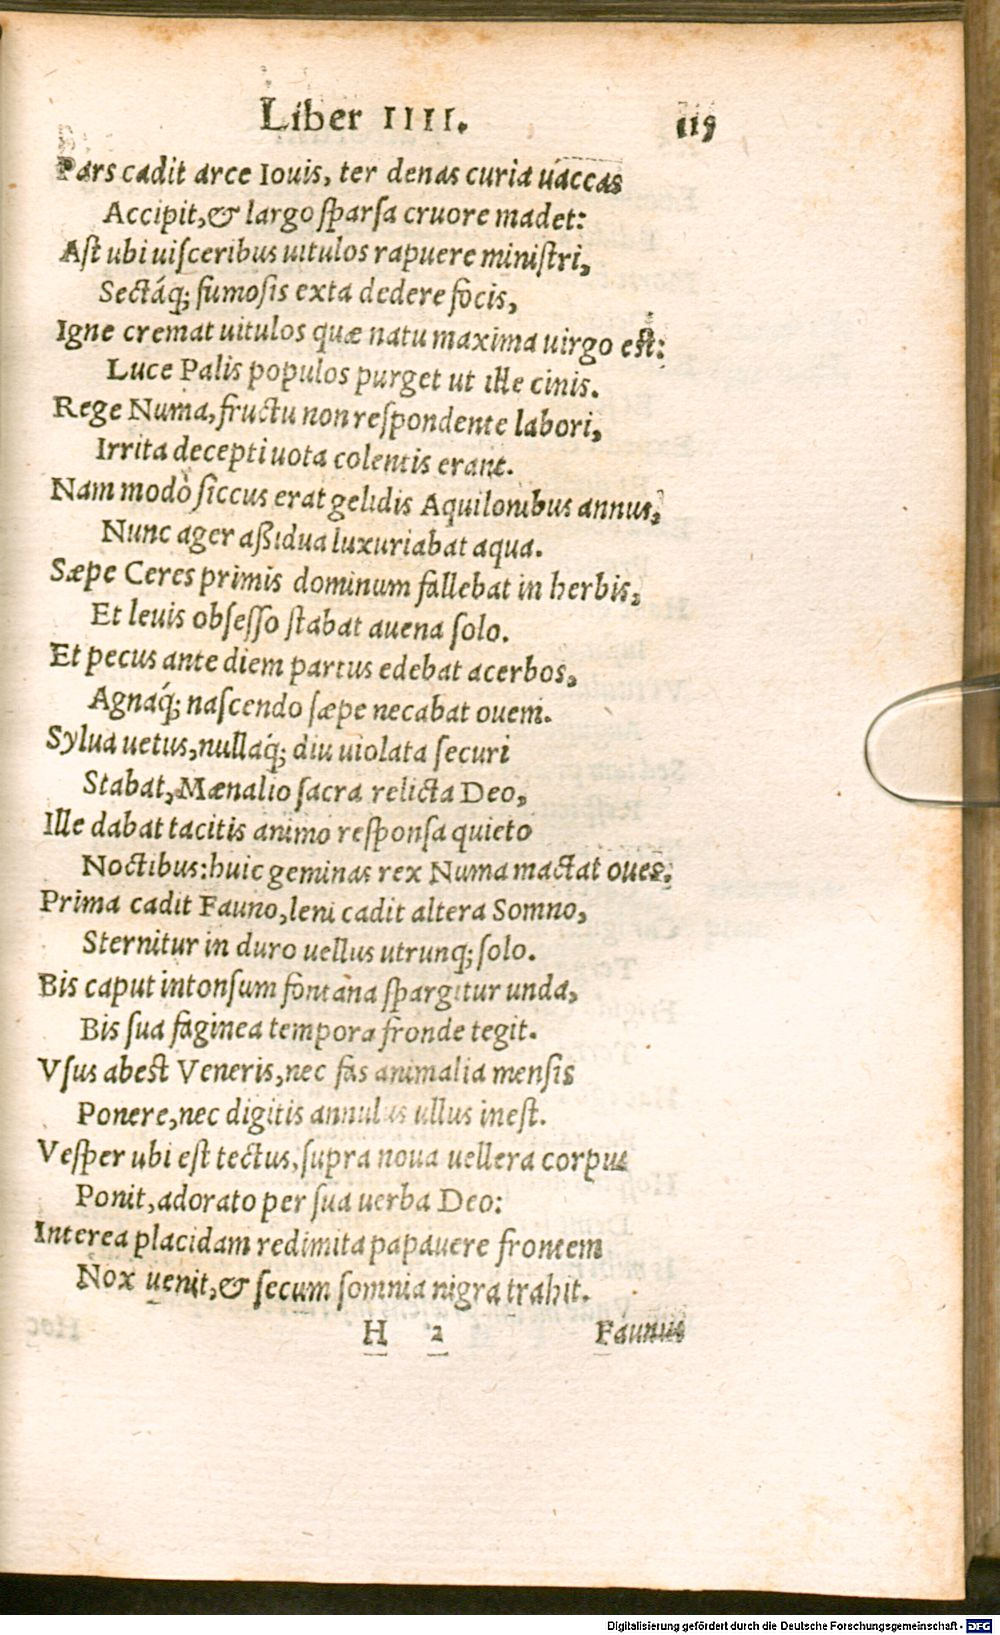 Liber IIII. 119
Pars cadit arce Iouis, ter denas curia uaccas
Accipit, & largo sparsa cruore madet:
Ast ubi uisceribus uitulos rapuere ministri,
Sectáq; fumosis exta dedere focis,
Igne cremat uitulos quæ natu maxima uirgo est:
Luce Palis populos purget ut ille cinis.
Rege Numa, fructu non respondente labori,
Irrita decepti uota colentis erant.
Nam modò siccus erat gelidis Aquilonibus annus,
Nunc ager aßidua luxuriabat aqua.
Sæpe Ceres primis dominum fallebat in herbis,
Et leuis obsesso stabat auena solo.
Et pecus ante diem partus edebat acerbos,
Agnaq́; nascendo sæpe necabat ouem.
Sylua uetus, nullaq́; diu uiolata securi
Stabat, Mænalio sacra relicta Deo,
Ille dabat tacitis animo responsa quieto
Noctibus: huic geminas rex Numa mactat oues.
Prima cadit Fauno, leni cadit altera Somno,
Sternitur in duro uellus utrunq; solo.
Bis caput intonsum fontana spargitur unda,
Bis sua faginea tempora fronde tegit.
Vsus abest Veneris, nec fas animalia mensis
Ponere, nec digitis annulus ullus inest.
Vesper ubi est tectus, supra noua uellera corpus
Ponit, adorato per sua uerba Deo:
Interea placidam redimita papauere frontem
Nox uenit, & secum somnia nigra trahit.
H 2 Faunus
Digitalisierung gefördert durch die Deutsche Forschungsgemeinschaft - DFG